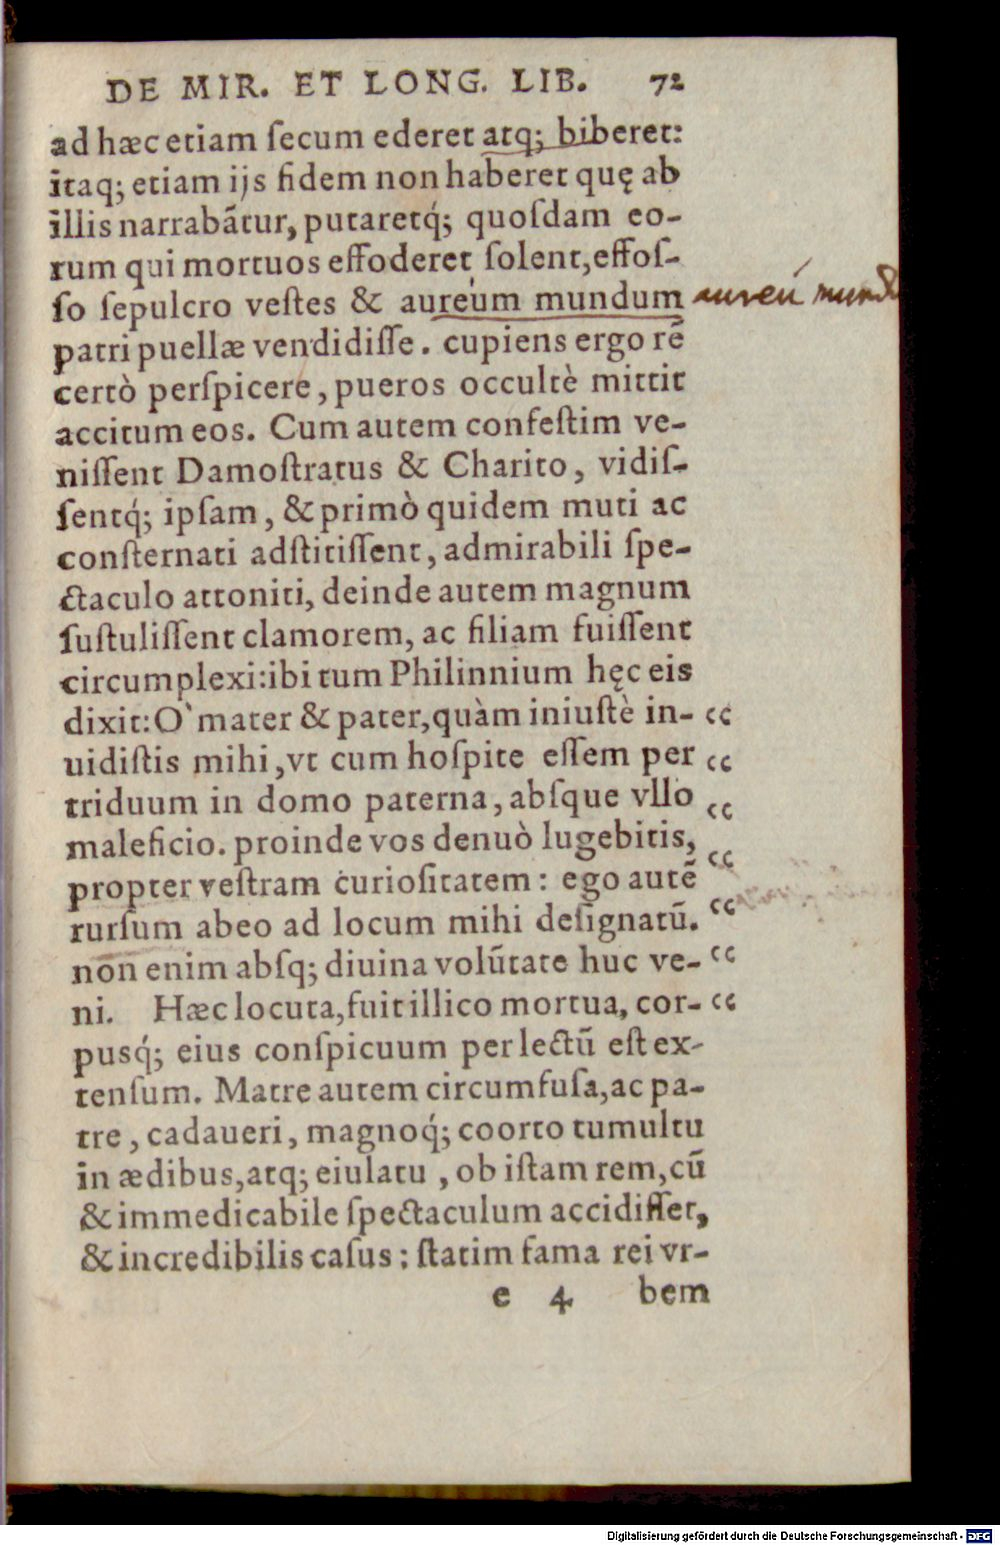 DE MIR. ET LONG. LIB. 72
ad hæc etiam ſecum ederet atq; biberet:
itaq; etiam ijs fidem non haberet quę ab
illis narrabãtur, putaretq́; quoſdam eo-
rum qui mortuos effoderet ſolent, effoſ-
ſo ſepulcro veſtes & aureum mundum aureú mund
patri puellæ vendidiſſe. cupiens ergo rẽ
certò perſpicere, pueros occultè mittit
accitum eos. Cum autem confeſtim ve-
niſſent Damoſtratus & Charito, vidiſ-
ſentq́; ipſam, & primò quidem muti ac
conſternati adſtitiſſent, admirabili ſpe-
ctaculo attoniti, deinde autem magnum
ſuſtuliſſent clamorem, ac filiam fuiſſent
circumplexi: ibi tum Philinnium hęc eis
dixit: O` mater & pater, quàm iniuſtè in- cc
uidiſtis mihi, vt cum hoſpite eſſem per cc
triduum in domo paterna, abſque vllo cc
maleficio. proinde vos denuò lugebitis, cc
propter veſtram curioſitatem: ego autẽ
rurſum abeo ad locum mihi deſignatũ. cc
non enim abſq; diuina volũtate huc ve- cc
ni. Hæc locuta, fuit illico mortua, cor- cc
puſq́; eius conſpicuum per lectũ eſt ex-
tenſum. Matre autem circumfuſa, ac pa-
tre, cadaueri, magnoq́; coorto tumultu
in ædibus, atq; eiulatu, ob iſtam rem, cũ
& immedicabile ſpectaculum accidiſſet,
& incredibilis caſus: ſtatim fama rei vr-
e 4 bem
Digitalisierung gefördert durch die Deutsche Forschungsgemeinschaft - DFG